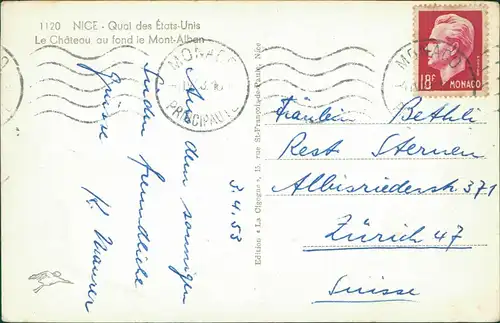 1120 NICE - Quai des États-Unis
Le Château, au fond le Mont-Alban
MONACO
PRINCIPAUTÉ
18F
MONACO
Aus dem sonnigen
Süden freundliche
Grüsse
K. Maurer
3.4.53
Edition « La Cigogne », 15, rue St-François-de-Paule, Nice
Fräulein Bethli
Rest Sternen
Albisriederstr 371
Zürich 47
Suisse